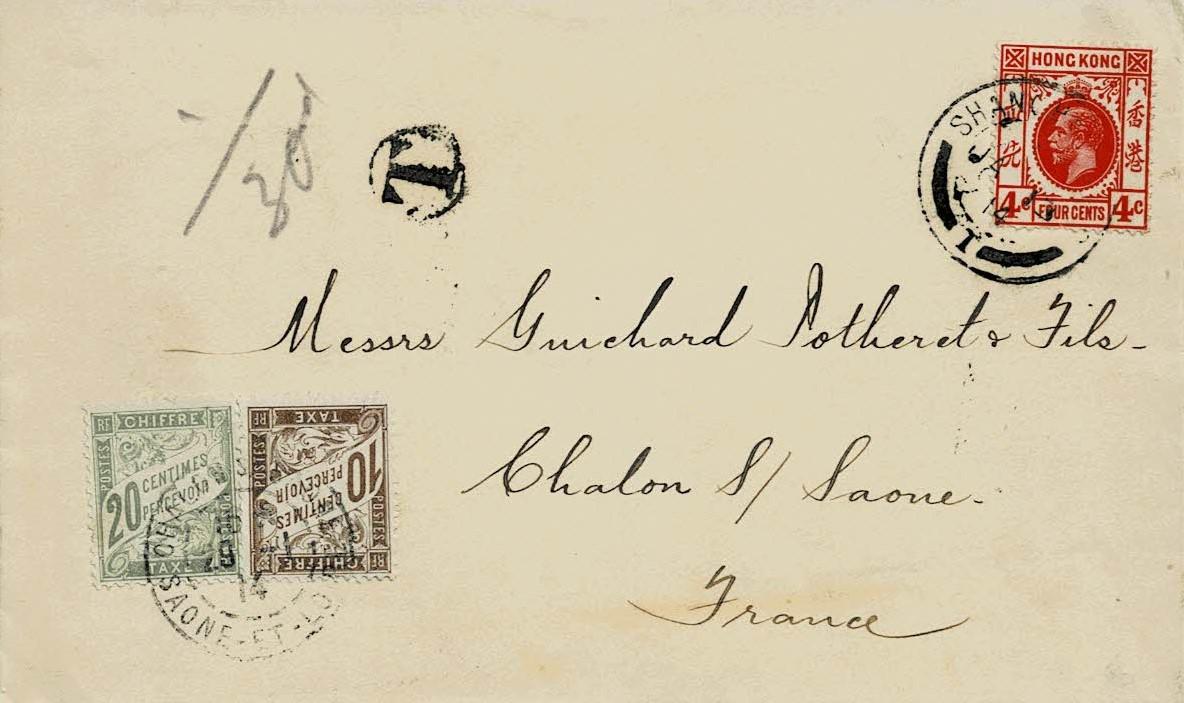 HONG KONG
香港
先
4c FOUR CENTS 4c
SHANG
/30
T
Messrs Guichard Potheret & Fils -
Chalon S/ Saone -
France
RF CHIFFRE
POSTES
20 CENTIMES
À PERCEVOIR
TAXE
RF CHIFFRE
POSTES
10 CENTIMES
À PERCEVOIR
POSTES
TAXE RF
14
SAONE-ET-LO